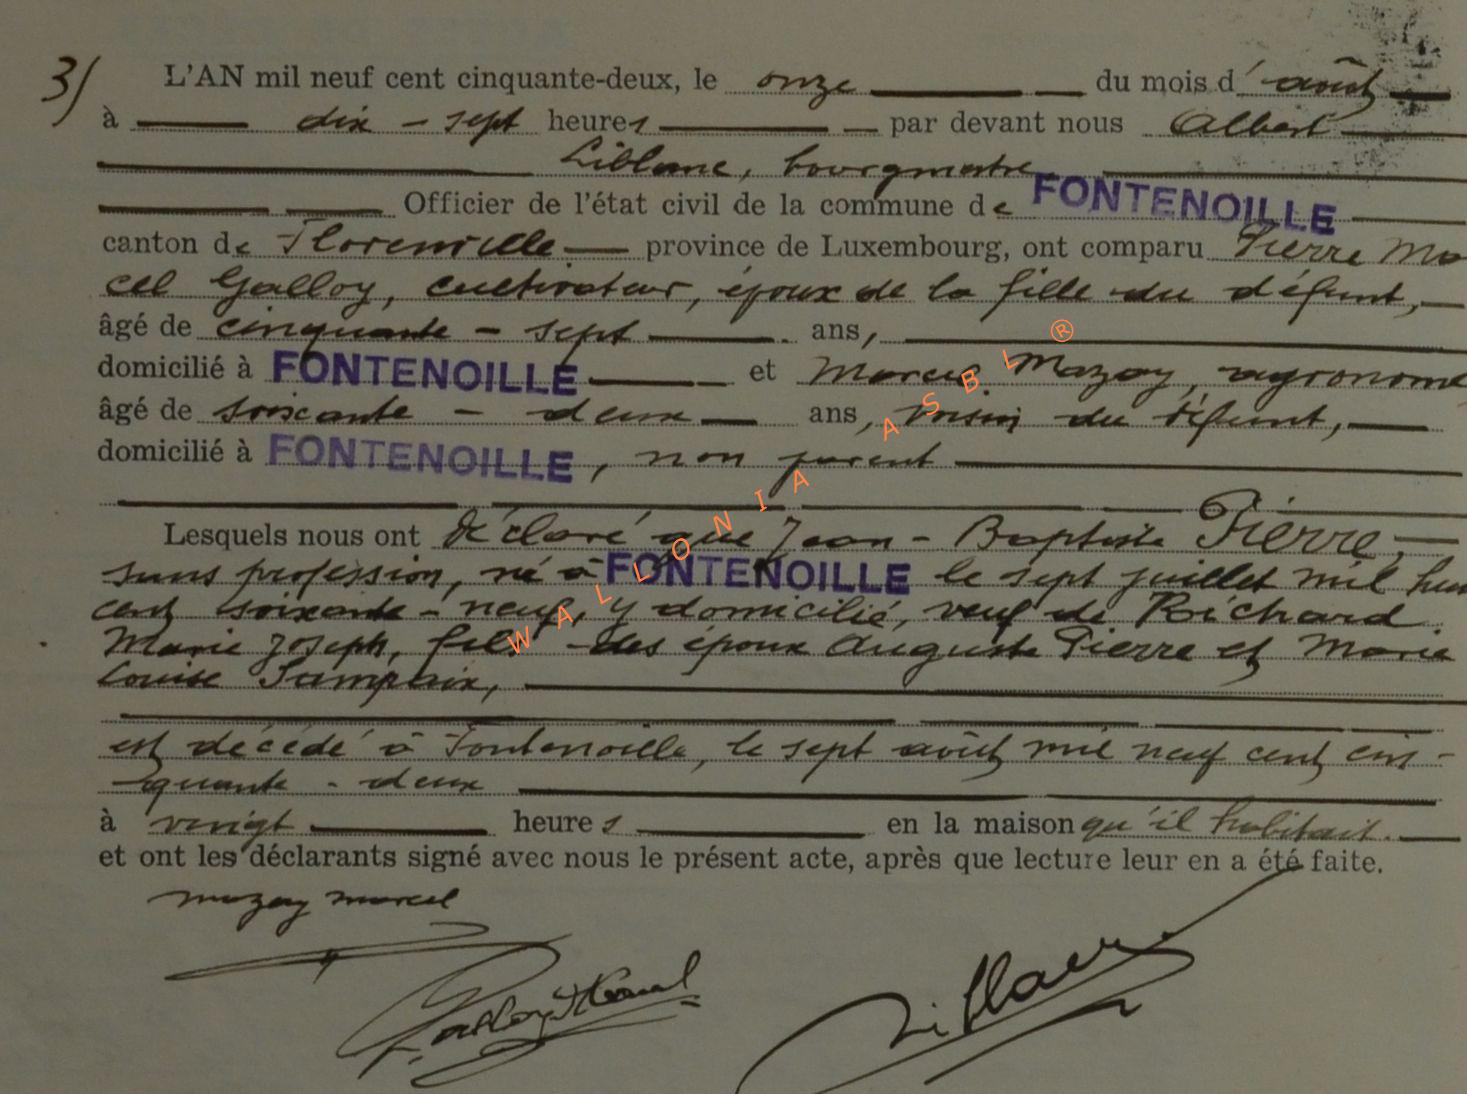 3/ L'AN mil neuf cent cinquante-deux, le onze du mois d'août
à dix-sept heures par devant nous Albert
Liblanc, bourgmestre
Officier de l'état civil de la commune de FONTENOILLE
canton de Florenville province de Luxembourg, ont comparu Pierre Ma
cel Galloy, cultivateur, époux de la fille du défunt,
âgé de cinquante-sept ans,
domicilié à FONTENOILLE et Marcel Mozay, agronome
âgé de soixante-deux ans, voisin du défunt,
domicilié à FONTENOILLE, non parent
Lesquels nous ont déclaré que Jean-Baptiste Pierre,
sans profession, né à FONTENOILLE le sept juillet mil hui
cent soixante-neuf, y domicilié, veuf de Richard
Marie Joseph, fils des époux Auguste Pierre et Marie
Louise Sampaix,
est décédé à Fontenoille, le sept août mil neuf cent cin-
quante-deux
à vingt heures en la maison qu'il habitait.
et ont les déclarants signé avec nous le présent acte, après que lecture leur en a été faite.
mozay marcel
Galloy Marcel
Liblanc
WALLONIA ASBL ®